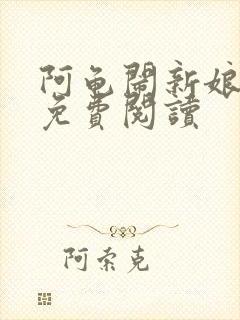 阿龟鬧新娘
免費閱讀
阿索克